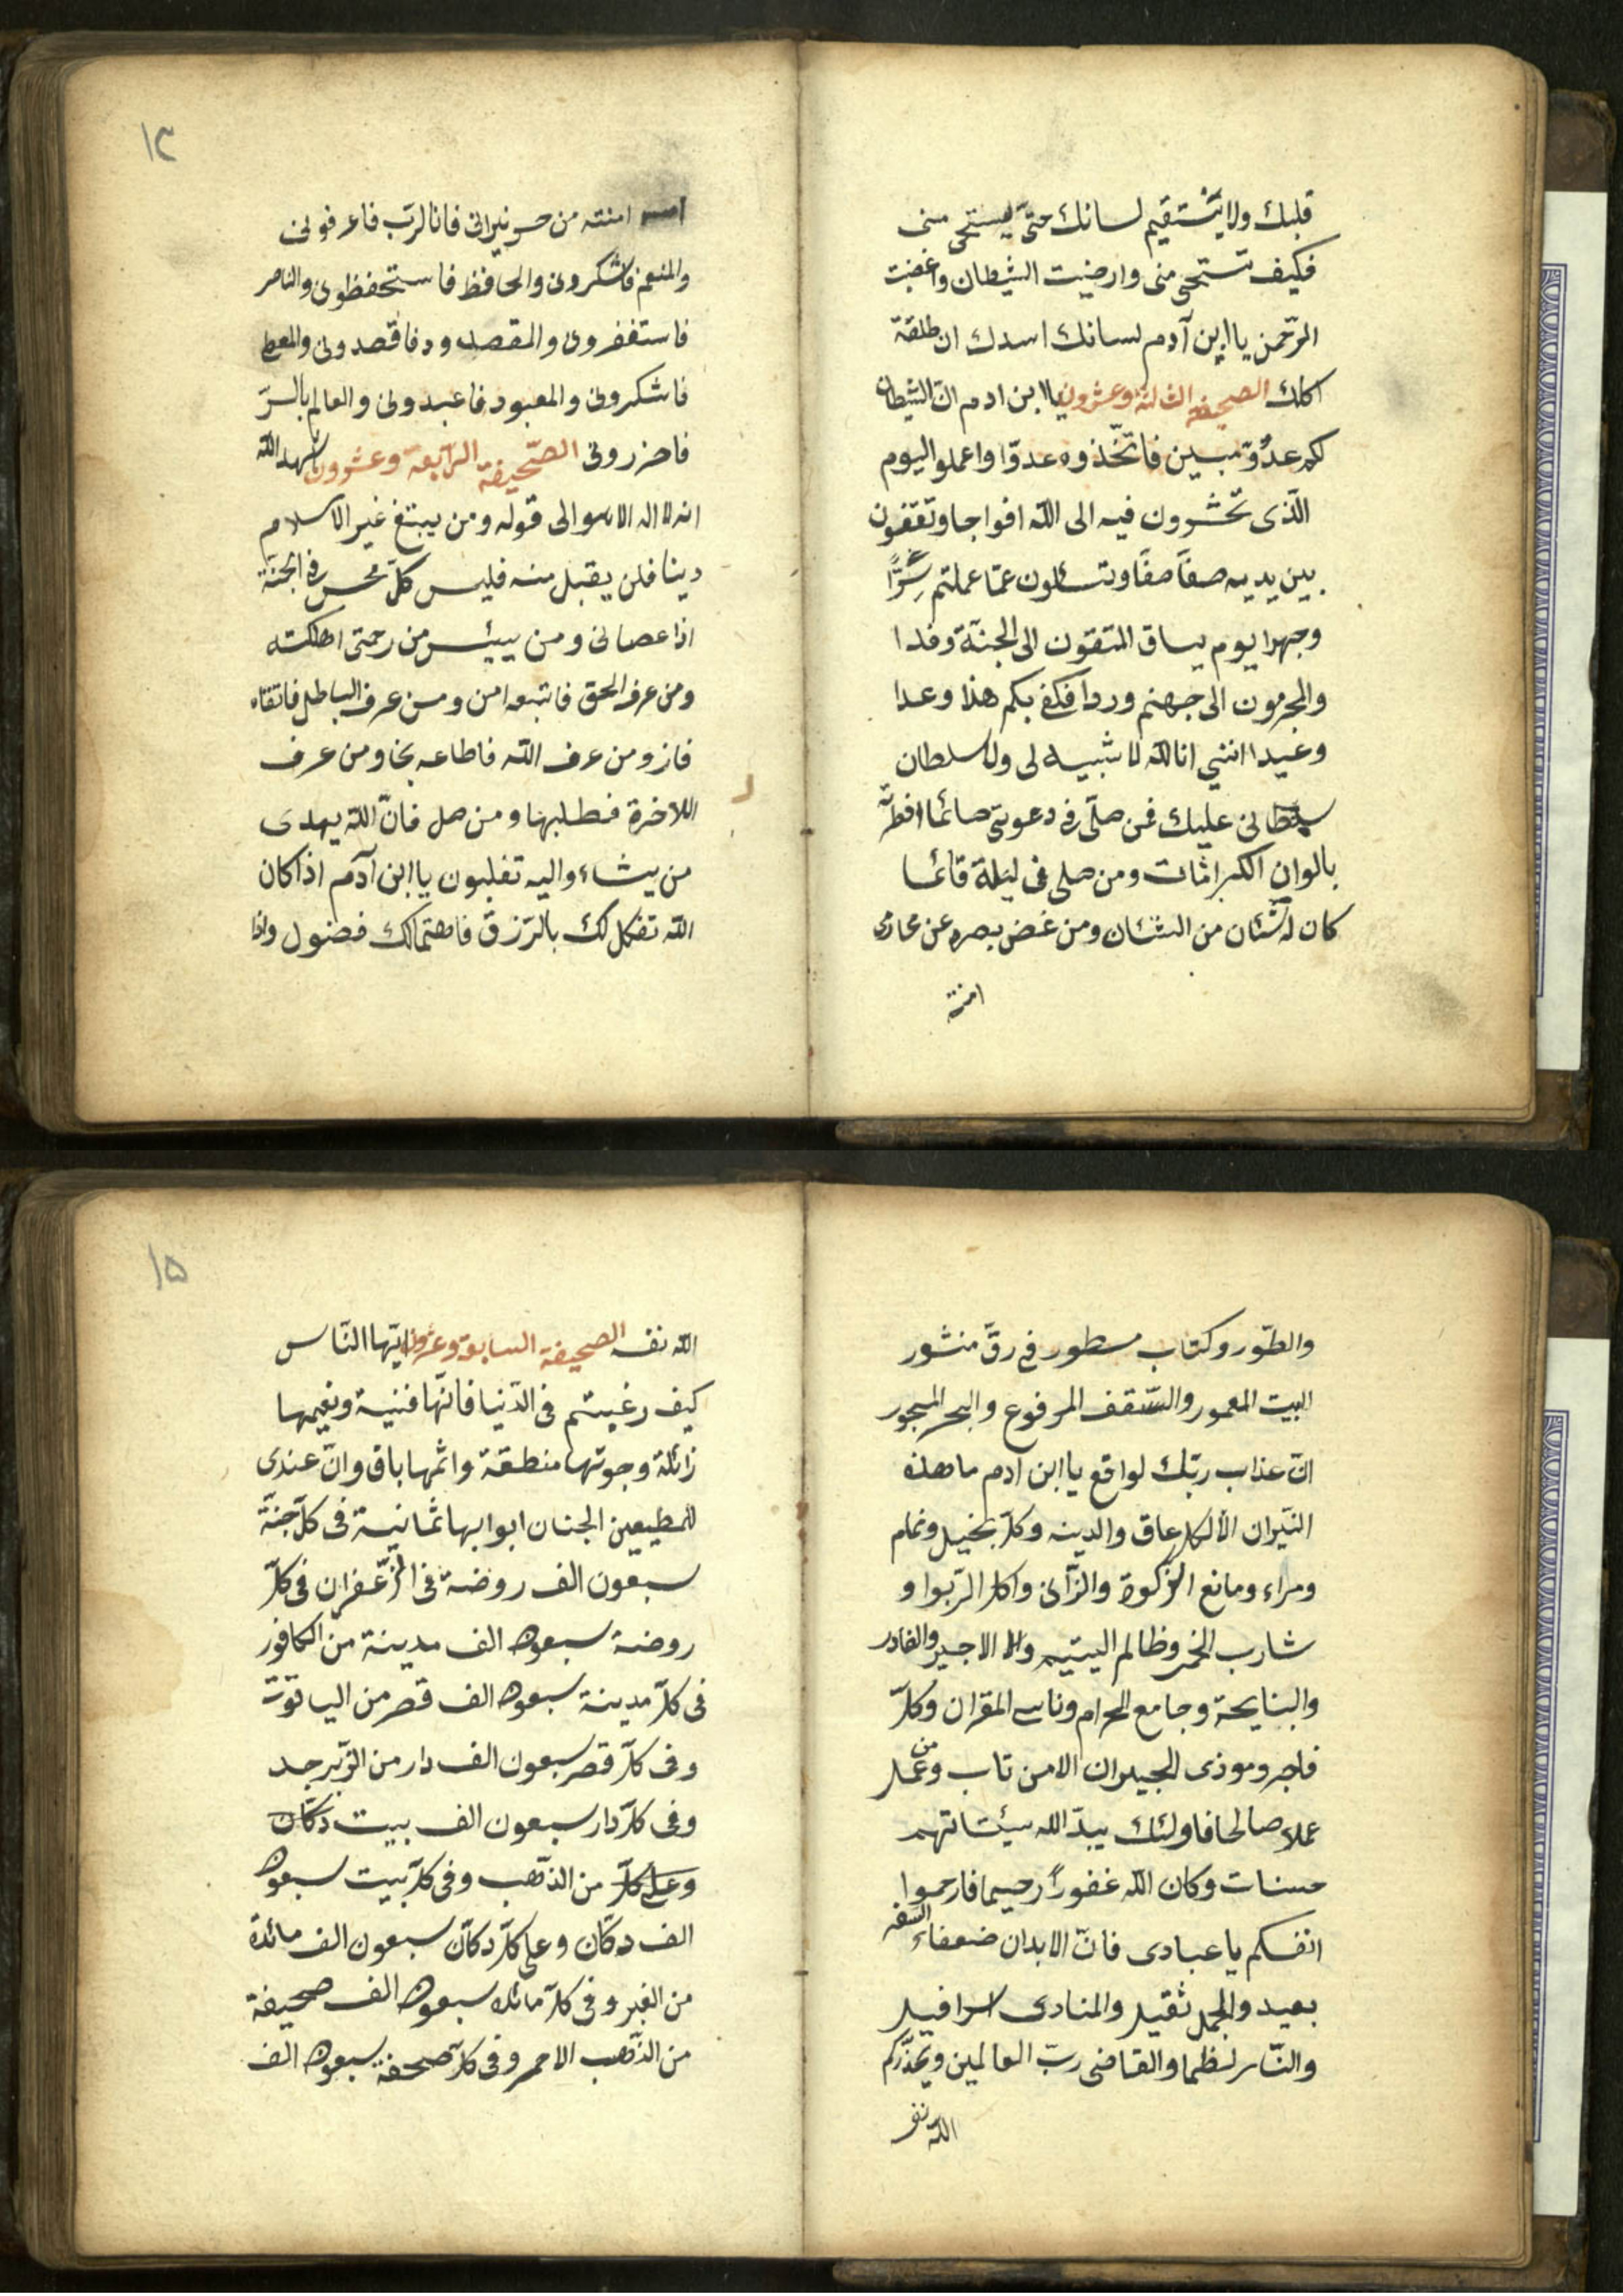 قلبك ولا يستقيم لسانك حتى يستحى منى
فكيف تستحى منى وارضيت الشيطان واغضبت
الرّحمن يا ابن آدم لسانك اسدك ان طلقته
اكلك الصحيفة الثالثة وعشرون يا ابن ادم انّ الشيطان
لكم عدوّ مبين فاتّخذوه عدوّا واعملوا اليوم
الّذى تحشرون فيه الى اللّه افواجا وتقفون
بين يديه صفّا صفّا وتسئلون عمّا عملتم سرًّا
وجهرا يوم يساق المتقون الى الجنّة وفدا
والمجرمون الى جهنم وردا فكفى بكم هذا وعدا
وعيدا اننى انا اللّه لا شبيه لى ولا سلطان
سلطانى عليك فمن صلّى فى دعوتى صائما افطرته
بالوان الكبراثات ومن صلى فى ليلة قائما
كان له شئان من الشئان ومن غض بصره عن محارمى
امنته
١٣
امنته من حر نيرانى فانا الرّب فاعرفونى
والمنعم فاشكرونى والحافظ فاستحفظونى والناصر
فاستغفرونى والمقصود فاقصدونى والمعطى
فاشكرونى والمعبود فاعبدونى والعالم بالسّر
فاحزرونى الصّحيفة الرّابعة وعشرون شهد اللّه
انه لا اله الا هو الى قوله ومن يبتغ غير الاسلام
دينا فلن يقبل منه فليس كلّ محسن فى الجنة
اذا عصانى ومن ييئس من رحمتى اهلكته
ومن عرف الحق فاتبعه امن ومن عرف الباطل فاتقاه
فاز ومن عرف اللّه فاطاعه نجا ومن عرف
اللاخرة فطلبها ومن صل فانّ اللّه يهدى
من يشاء واليه تقلبون يا ابن آدم اذا كان
اللّه تفكل لك بالرّزق فاهتمالك فضول واذا
والطّور وكتاب مسطور فى رقّ منشور
البيت المعمور والسّقف المرفوع والبحر المسجور
انّ عذاب ربّك لواقع يا ابن ادم ما هذه
النّيران الّا لكل عاق والدينه وكلّ بخيل ونمام
ومراء ومانع الزّكوة والزّانى واكل الرّبوا و
شارب الخمر وظالم اليتيم والاجير والغادر
والنايحة وجامع الحرام وناسى القران وكلّ
فاجر وموذى الجيران الا من تاب وعمل
عملا صالحا فاولئك يبدّ اللّه سيّئاتهم
حسنات وكان اللّه غفوراً رحيما فارحموا
انفسكم يا عبادى فانّ الابدان ضعفاء السفر
بعيد والحمل ثقيل والمنادى اسرافيل
والنّار لظا والقاضى ربّ العالمين ويحذّركم
اللّه نفسه
١٥
اللّه نفسه الصحيفة السابعة وعشرون ايّها النّاس
كيف رغبتم فى الدّنيا فانّها فنية ونعيمها
زائلة وحوتها منطقة واثمها باق وانّ عندى
للمطيعين الجنان ابوابها ثمانية فى كلّ جنّة
سبعون الف روضة فى الزّعفران فى كلّ
روضة سبعون الف مدينة من الكافور
فى كلّ مدينة سبعون الف قصر من الياقوت
وفى كلّ قصر سبعون الف دار من الزّبرجد
وفى كلّ دار سبعون الف بيت دكّان
وعلى كلّ من الذّهب وفى كلّ بيت سبعون
الف دكّان وعلى كلّ دكّان سبعون الف مائدة
من الغبر وفى كلّ مائدة سبعون الف صحيفة
من الذّهب الاحمر وفى كلّ صحفة سبعون الف